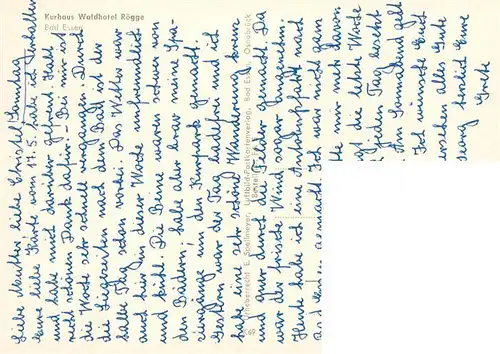 Kurhaus Waldhotel Rögge
Bad Essen
Liebe Mutter, liebe Christel
Eure liebe Karte vom 17.5. habe ich erhalten
und habe mich darüber gefreut. Habt
recht schönen Dank dafür. - Bei mir ist
die Woche sehr schnell vergangen. Durch
die Liegezeiten nach dem Bad ist der
halbe Tag schon vorbei. Das Wetter war
auch hier in dieser Woche unfreundlich
und kühl. Die Beine waren schwer von
den Bädern, habe aber brav meine Spa-
ziergänge um den Kurpark gemacht.
Gestern war der Tag badefrei und ich
habe eine sehr schöne Wanderung
und quer durch die Felder gemacht. Da
war der frische Wind sogar angenehm.
Heute habe ich eine Autobusfahrt nach
gemacht. Ich war noch nicht
mir davon
die letzte Woche
jeden Tag besetzt
Am Sonnabend geht
Ich wünsche Euch
alles Gute
herzlich Eure
Grete
Urheberrecht E. Spellmeyer, Luftbild-Postkartenverlag, Bad Essen, Osnabrück